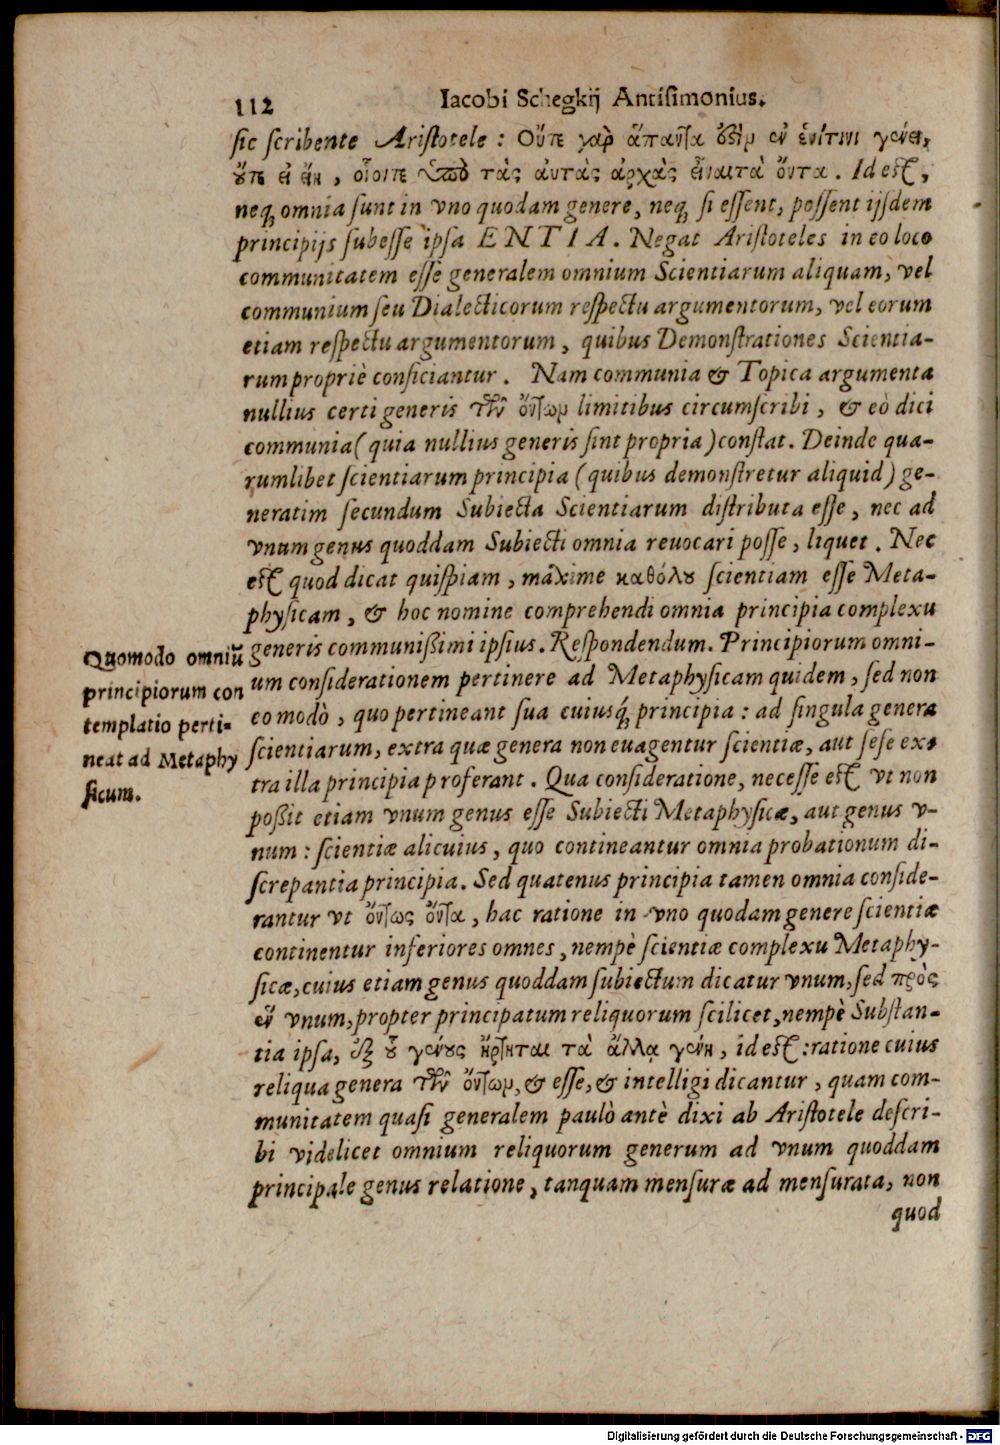 112
Iacobi Schegkij Antisimonius.
sic scribente Aristotele: Οὔτε γὰρ ἅπαντα ἐστὶν ἐν ἑνίτινι γένει,
οὔτε εἰ εἴη, οἷόντε ὑπὸ τὰς αὐτὰς ἀρχὰς εἶναιτὰ ὄντα. Id est,
neq; omnia sunt in vno quodam genere, neq; si essent, possent ijsdem
principijs subesse ipsa ENTIA. Negat Aristoteles in eo loco
communitatem esse generalem omnium Scientiarum aliquam, vel
communium seu Dialecticorum respectu argumentorum, vel eorum
etiam respectu argumentorum, quibus Demonstrationes Scientia-
rum propriè conficiantur. Nam communia & Topica argumenta
nullius certi generis τῶν ὄντων limitibus circumscribi, & eò dici
communia (quia nullius generis sint propria) constat. Deinde qua-
rumlibet scientiarum principia (quibus demonstretur aliquid) ge-
neratim secundum Subiecta Scientiarum distributa esse, nec ad
vnum genus quoddam Subiecti omnia reuocari posse, liquet. Nec
est quod dicat quispiam, maxime καθόλου scientiam esse Meta-
physicam, & hoc nomine comprehendi omnia principia complexu
generis communißimi ipsius. Respondendum. Principiorum omni-
um considerationem pertinere ad Metaphysicam quidem, sed non
eo modò, quo pertineant sua cuiusq́; principia: ad singula genera
scientiarum, extra quæ genera non euagentur scientiæ, aut sese ex-
tra illa principia proferant. Qua consideratione, necesse est vt non
poßit etiam vnum genus esse Subiecti Metaphysicæ, aut genus v-
num: scientiæ alicuius, quo contineantur omnia probationum di-
screpantia principia. Sed quatenus principia tamen omnia conside-
rantur vt ὄντως ὄντα, hac ratione in vno quodam genere scientiæ
continentur inferiores omnes, nempè scientiæ complexu Metaphy-
sicæ, cuius etiam genus quoddam subiectum dicatur vnum, sed πρὸς
ἓν vnum, propter principatum reliquorum scilicet, nempè Substan-
tia ipsa, ἐξ οὗ γένους ἤρτηται τὰ ἄλλα γένη, id est: ratione cuius
reliqua genera τῶν ὄντων, & esse, & intelligi dicantur, quam com-
munitatem quasi generalem paulò antè dixi ab Aristotele descri-
bi videlicet omnium reliquorum generum ad vnum quoddam
principale genus relatione, tanquam mensuræ ad mensurata, non
quod
Quomodo omniũ
principiorum con
templatio perti-
neat ad Metaphy
sicum.
Digitalisierung gefördert durch die Deutsche Forschungsgemeinschaft - DFG